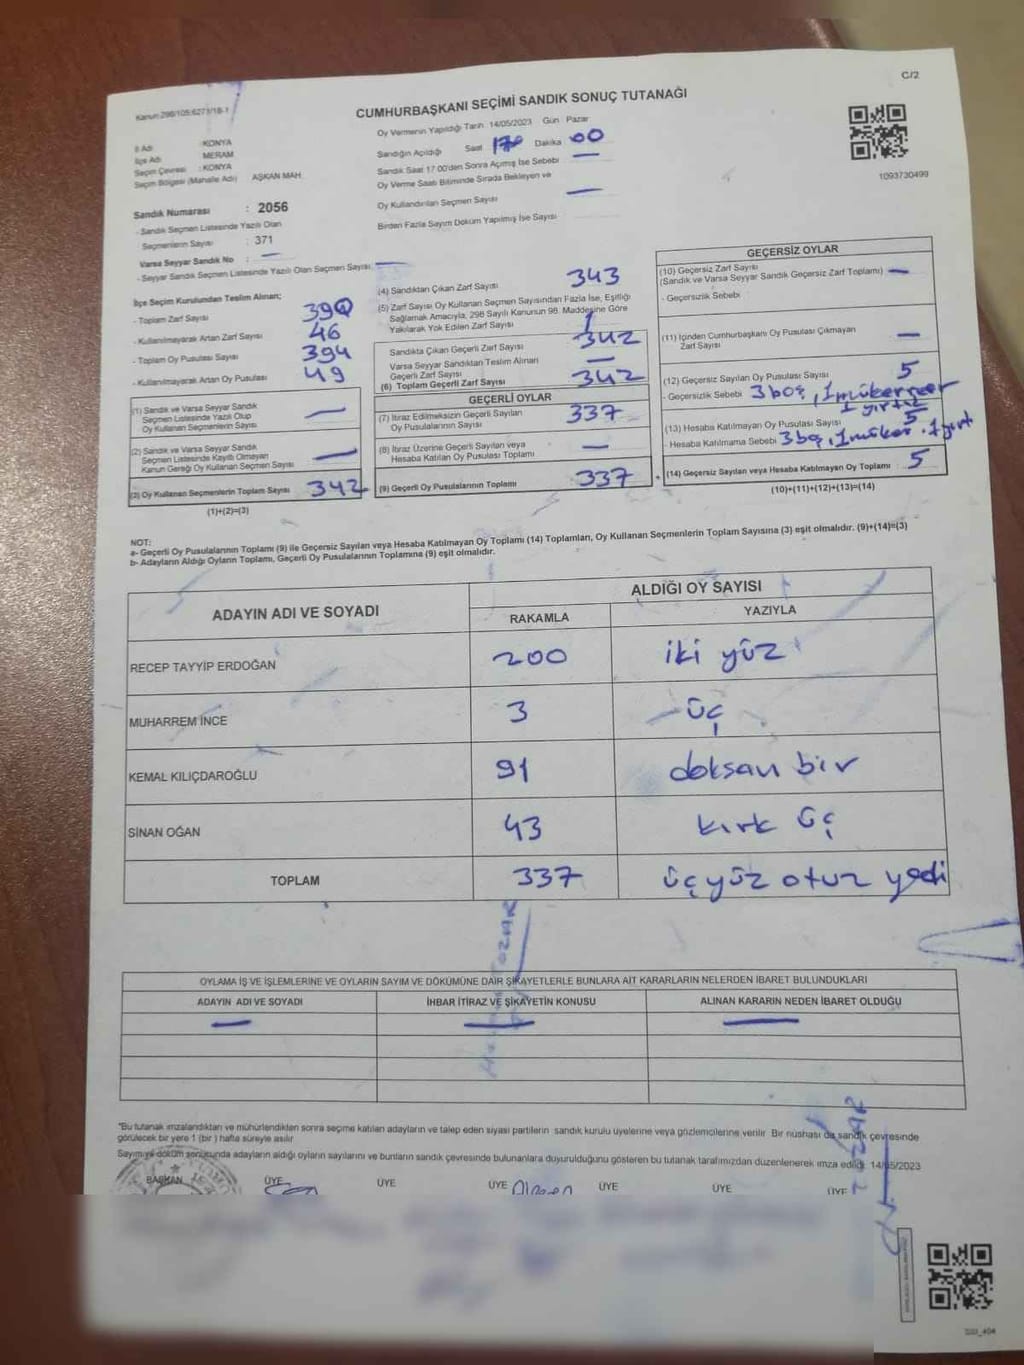 C/2
Kanun 298/105;6271/18-1
CUMHURBAŞKANI SEÇİMİ SANDIK SONUÇ TUTANAĞI
İl Adı : KONYA
İlçe Adı MERAM
Seçim Çevresi : KONYA
Seçim Bölgesi (Mahalle Adı) AŞKAN MAH.
Oy Vermenin Yapıldığı Tarih : 14/05/2023 Gün Pazar
Sandığın Açıldığı Saat Dakika 00
Sandık Saat 17:00'den Sonra Açılmış İse Sebebi —
Oy Verme Saati Bitiminde Sırada Bekleyen ve
Oy Kullandırılan Seçmen Sayısı —
Birden Fazla Sayım Döküm Yapılmış İse Sayısı
1093730499
Sandık Numarası : 2056
- Sandık Seçmen Listesinde Yazılı Olan
Seçmenlerin Sayısı : 371
Varsa Seyyar Sandık No : —
- Seyyar Sandık Seçmen Listesinde Yazılı Olan Seçmen Sayısı —
İlçe Seçim Kurulundan Teslim Alınan;
- Toplam Zarf Sayısı 390
- Kullanılmayarak Artan Zarf Sayısı 46
- Toplam Oy Pusulası Sayısı 394
- Kullanılmayarak Artan Oy Pusulası 49
(1) Sandık ve Varsa Seyyar Sandık
Seçmen Listesinde Yazılı Olup
Oy Kullanan Seçmenlerin Sayısı —
(2) Sandık ve Varsa Seyyar Sandık
Seçmen Listesinde Kayıtlı Olmayan
Kanun Gereği Oy Kullanan Seçmen Sayısı —
(3) Oy Kullanan Seçmenlerin Toplam Sayısı 342
(1)+(2)=(3)
(4) Sandıktan Çıkan Zarf Sayısı 343
(5) Zarf Sayısı Oy Kullanan Seçmen Sayısından Fazla İse, Eşitliği
Sağlamak Amacıyla, 298 Sayılı Kanunun 98. Maddesine Göre
Yakılarak Yok Edilen Zarf Sayısı 1
Sandıkta Çıkan Geçerli Zarf Sayısı 342
Varsa Seyyar Sandıktan Teslim Alınan
Geçerli Zarf Sayısı —
(6) Toplam Geçerli Zarf Sayısı 342
GEÇERLİ OYLAR
(7) İtiraz Edilmeksizin Geçerli Sayılan
Oy Pusulası Sayısı 337
(8) İtiraz Üzerine Geçerli Sayılan veya
Hesaba Katılan Oy Pusulası Toplamı —
(9) Geçerli Oy Pusulalarının Toplamı 337
GEÇERSİZ OYLAR
(10) Geçersiz Zarf Sayısı
(Sandık ve Varsa Seyyar Sandık Geçersiz Zarf Toplamı) —
- Geçersizlik Sebebi
(11) İçinden Cumhurbaşkanı Oy Pusulası Çıkmayan
Zarf Sayısı —
(12) Geçersiz Sayılan Oy Pusulası Sayısı 5
- Geçersizlik Sebebi 3 boş, 1 mükerrer
1 yırtık
(13) Hesaba Katılmayan Oy Pusulası Sayısı 5
- Hesaba Katılmama Sebebi 3 boş, 1 müker. 1 yırt
(14) Geçersiz Sayılan veya Hesaba Katılmayan Oy Toplamı 5
(10)+(11)+(12)+(13)=(14)
NOT:
a- Geçerli Oy Pusulalarının Toplamı (9) ile Geçersiz Sayılan veya Hesaba Katılmayan Oy Toplamı (14) Toplamları, Oy Kullanan Seçmenlerin Toplam Sayısına (3) eşit olmalıdır. (9)+(14)=(3)
b- Adayların Aldığı Oyların Toplamı, Geçerli Oy Pusulalarının Toplamına (9) eşit olmalıdır.
ADAYIN ADI VE SOYADI ALDIĞI OY SAYISI
RAKAMLA YAZIYLA
RECEP TAYYİP ERDOĞAN 200 iki yüz
MUHARREM İNCE 3 üç
KEMAL KILIÇDAROĞLU 91 doksan bir
SİNAN OĞAN 43 kırk üç
TOPLAM 337 üçyüz otuz yedi
OYLAMA İŞ VE İŞLEMLERİNE VE OYLARIN SAYIM VE DÖKÜMÜNE DAİR ŞİKAYETLERLE BUNLARA AİT KARARLARIN NELERDEN İBARET BULUNDUKLARI
ADAYIN ADI VE SOYADI İHBAR İTİRAZ VE ŞİKAYETİN KONUSU ALINAN KARARIN NEDEN İBARET OLDUĞU
— — —
"Bu tutanak imzalandıktan ve mühürlendikten sonra seçime katılan adayların ve talep eden siyasi partilerin sandık kurulu üyelerine veya gözlemcilerine verilir. Bir nüshası da sandık çevresinde
görülecek bir yere 1 (bir) hafta süreyle asılır
Sayım ve döküm sonucunda adayların aldığı oyların sayılarını ve bunların sandık çevresinde bulunanlara duyurulduğunu gösteren bu tutanak tarafımızdan düzenlenerek imza edildi. 14/05/2023
BAŞKAN ÜYE ÜYE ÜYE ÜYE ÜYE ÜYE